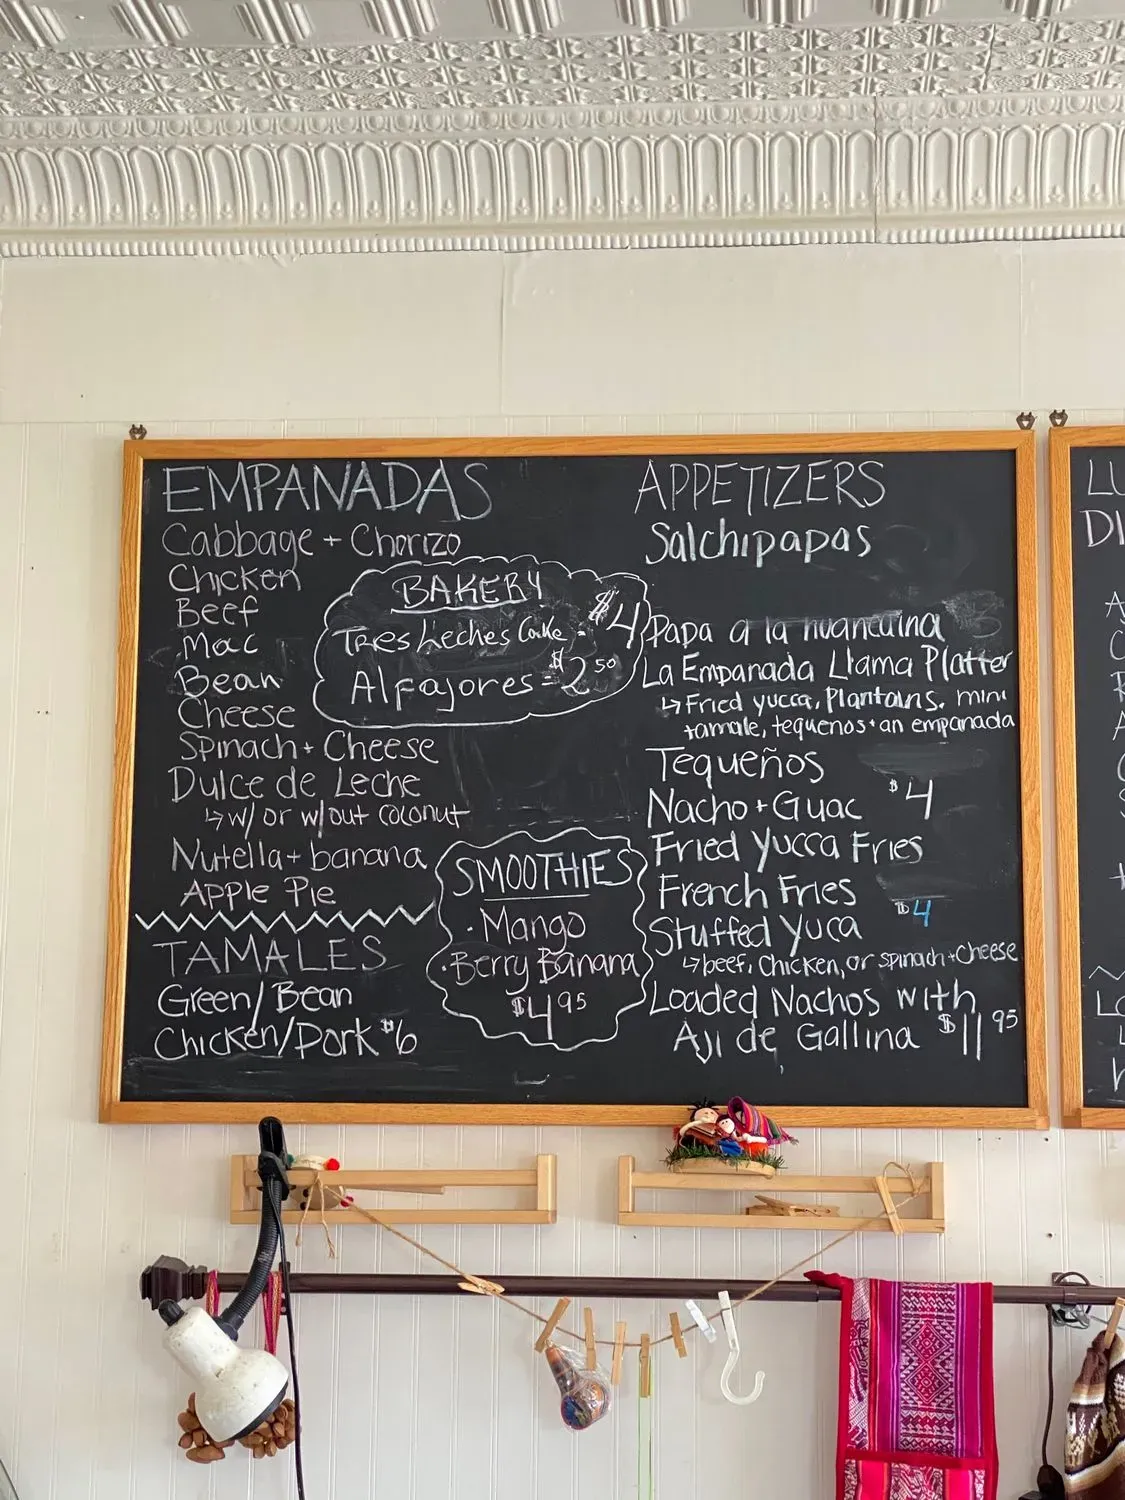 EMPANADAS
Cabbage + Chorizo
Chicken
Beef
Mac
Bean
Cheese
Spinach + Cheese
Dulce de Leche
↳ w/ or w/out coconut
Nutella + banana
Apple Pie
TAMALES
Green/Bean
Chicken/Pork $6
BAKERY
Tres Leches Cake = $4
Alfajores = $2.50
SMOOTHIES
· Mango
· Berry Banana
$4 95
APPETIZERS
Salchipapas
Papa a la huancaina
La Empanada Llama Platter
↳ Fried yucca, Plantains, mini
tamale, tequenos + an empanada
Tequeños
Nacho + Guac $4
Fried Yucca Fries
French Fries $4
Stuffed Yuca
↳ beef, Chicken, or spinach + Cheese
Loaded Nachos with
Aji de Gallina $11 95
LU
DI